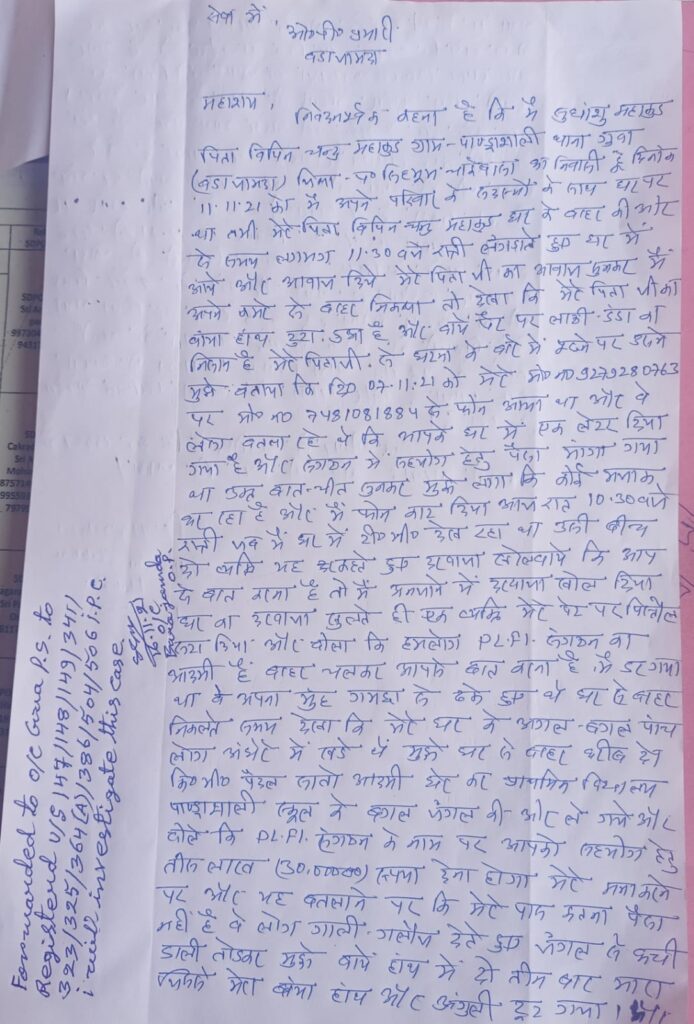 सेवा में,
ओ०पी० प्रभारी
बडाजामदा
महाशय,
निवेदनपूर्वक कहना है कि मैं सुधांशु महाकुड
पिता बिपिन चन्द्र महाकुड ग्राम - पाण्ड्राशाली थाना गुवा
(बडाजामदा) जिला - प० सिंहभूम चाईबासा का निवासी हूँ दिनांक
11.11.21 को मैं अपने परिवार के सदस्यों के साथ घर पर
था तभी मेरे पिता बिपिन चन्द्र महाकुड घर के बाहर की ओर
से समय लगभग 11.30 बजे रात्री लंगडाते हुए घर में
आये और आवाज दिये मेरे पिता जी का आवाज सुनकर मैं
अपने कमरे से बाहर निकला तो देखा कि मेरे पिता जी का
बांया हाथ टुटा हुआ है और बायें पैर पर लाठी डंडा का
निशान है मेरे पिताजी से घटना के बारे में पुछने पर उसने
मुझे बताया कि दि० 07-11-21 को मेरे मो० no 9279280763
पर मो० no 7481081884 से फोन आया था और वे
लोग बतला रहे थे कि आपके घर में एक लेटर दिया
गया है और संगठन में सहयोग हेतु पैसा मांगा गया
था उक्त बात-चीत सुनकर मुझे लगा कि कोई मजाक
कर रहा है और मैं फोन काट दिया आज रात 10.30 बजे
रात्री जब मैं घर में टी०भी० देख रहा था उसी बीच
दो व्यक्ति यह कहते हुए दरवाजा खोलवाये कि आप
से बात करना है तो मैं अनजाने में दरवाजा खोल दिया
घर का दरवाजा खुलते ही एक व्यक्ति मेरे पेट पर पिस्तौल
सटा दिया और बोला कि हमलोग P.L.F.I. संगठन का
आदमी हैं बाहर चलकर आपसे बात करना है मैं डर गया
था वे अपना मुँह गमछा से ढके हुए थे घर से बाहर
निकलते समय देखा कि मेरे घर के अगल-बगल पांच
लोग अंधेरे में खडे थे मुझे घर से बाहर करीब डेढ
कि०मी० पैदल सातो आदमी घेर कर प्राथमिक विद्यालय
पाण्ड्राशाली स्कूल के बगल जंगल की ओर ले गये और
बोले कि P.L.F.I. संगठन के नाम पर आपको सहयोग हेतु
तीस लाख (30,00000) रूपया देना होगा मेरे मना करने
पर और यह बतलाने पर कि मेरे पास इतना पैसा
नहीं है वे लोग गाली-गलौज देते हुए जंगल से कच्ची
डाली तोडकर मुझे बायें हाथ में दो तीन बार मारा
जिससे मेरा बांया हाथ और अंगुली टूट गया।
Forwarded to O/C Gua P.S. to
Registerd U/S 147/148/149/341/
323/325/364(A)/386/504/506 I.P.C.
i will investigate this case
12.11.21
O/C
Barajamda
O.P.